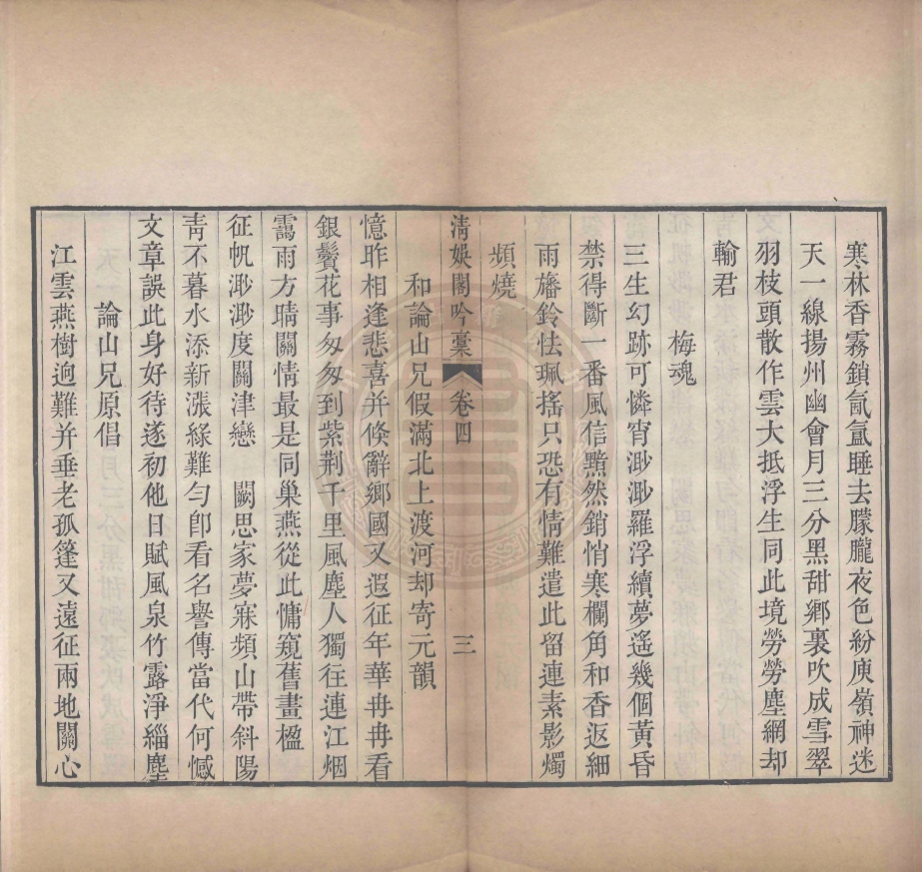 寒林香霧鎖氤氲睡去朦朧夜色紛庾嶺神迷
天一線揚州幽會月三分黑甜鄉裏吹成雪翠
羽枝頭散作雲大抵浮生同此境勞勞塵網却
輸君
梅魂
三生幻跡可憐宵渺渺羅浮續夢遙幾個黃昏
禁得斷一番風信黯然銷悄寒欄角和香返細
雨旛鈴怯珮搖只恐有情難遣此留連素影燭
頻燒
清娛閣吟稾 卷四 三
和論山兄假滿北上渡河却寄元韻
憶昨相逢悲喜并倏辭鄉國又遐征年華冉冉看
銀鬢花事匆匆到紫荆千里風塵人獨往連江烟
靄雨方晴關情最是同巢燕從此慵窺舊畫楹
征帆渺渺度關津戀 闕思家夢寐頻山帶斜陽
靑不暮水添新漲綠難勻卽看名譽傳當代何憾
文章誤此身好待遂初他日賦風泉竹露淨緇塵
論山兄原倡
江雲燕樹逈難并垂老孤篷又遠征兩地關心